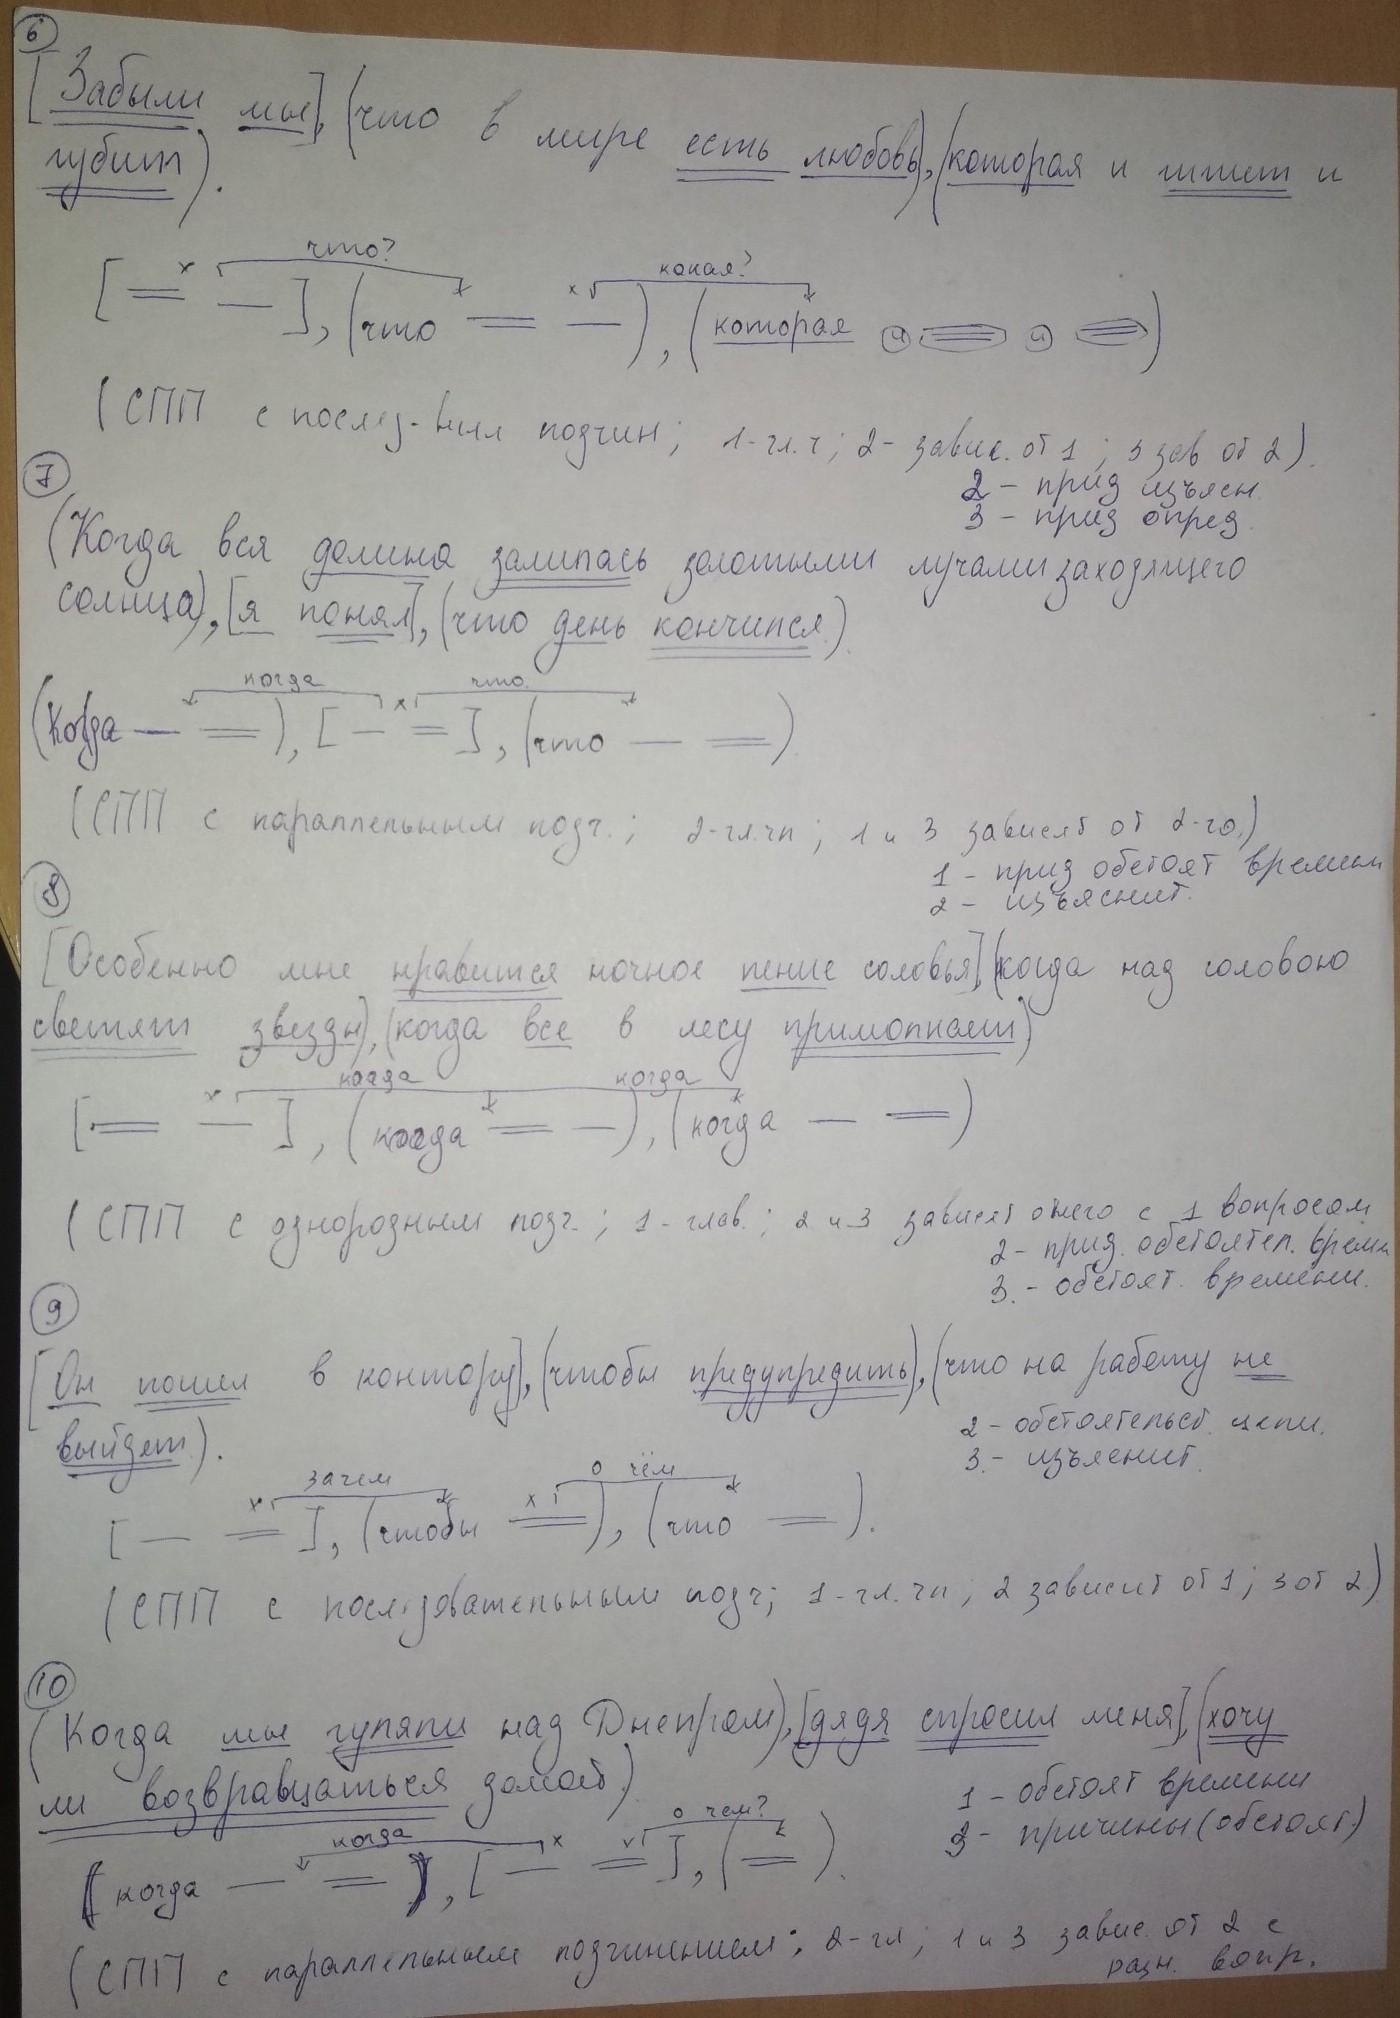 6
[Забыли мы], (что в мире есть любовь), (которая и жжет и
губит).
что? какая?
[ ], (что ), (которая и и )
(СПП с послед-ным подчин; 1-гл.ч; 2-завис. от 1; 3 зав от 2).
2 - прид изъясн.
3 - прид опред.
7
(Когда вся долина залилась золотыми лучами заходящего
солнца), [я понял], (что день кончился).
когда что
(Когда ), [ ], (что ).
(СПП с параллельным подч.; 2-гл.чп; 1 и 3 зависят от 2-го.)
1 - прид обстоят времени
2 - изъяснит.
8
[Особенно мне нравится ночное пение соловья], (когда над головою
светят звезды), (когда все в лесу примолкнет)
когда когда
[ ], (когда ), (когда )
(СПП с однородным подч.; 1-глав.; 2 и 3 зависят от него с 1 вопросом
2- прид. обстоятел. времени
3.- обстоят. времени.
9
[Он пошел в контору], (чтобы предупредить), (что на работу не
выйдет).
2- обстоятельст. цели.
3.- изъяснит.
зачем о чём
[ ], (чтобы ), (что ).
(СПП с последовательным подч; 1-гл.чп; 2 зависит от 1; 3 от 2)
10
(Когда мы гуляли над Днепром), [дядя спросил меня], (хочу
ли возвращаться домой.)
1 - обстоят времени
3 - причины (обстоят.)
когда о чем?
(когда ), [ ], ( ).
(СПП с параллельным подчинением; 2-гл; 1 и 3 завис. от 2 с
разн. вопр.